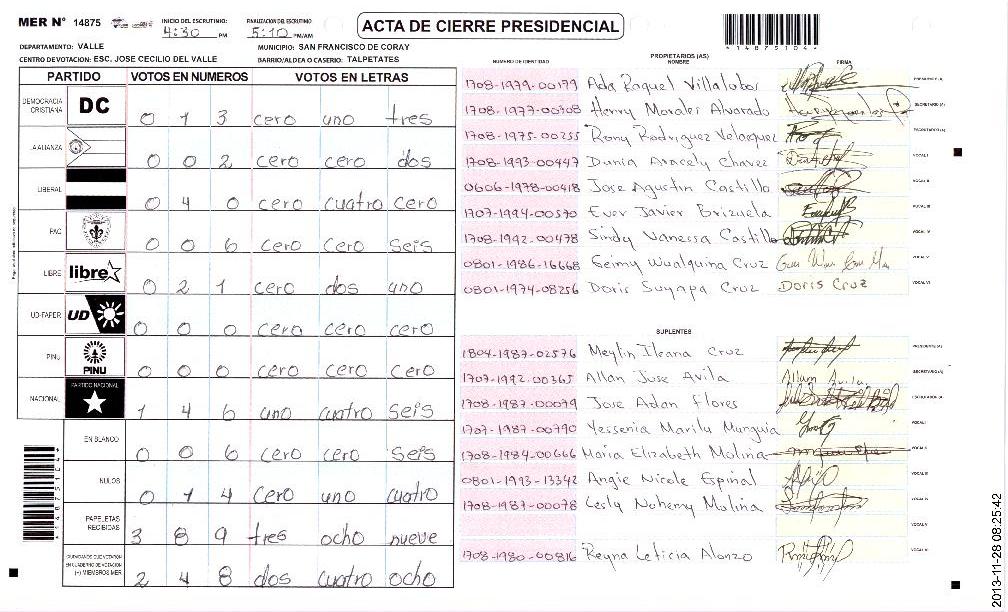 MER N° 14875
INICIO DEL ESCRUTINIO: 4:30 PM
FINALIZACION DEL ESCRUTINIO 5:10 PM/AM
ACTA DE CIERRE PRESIDENCIAL
*14875104*
DEPARTAMENTO: VALLE
MUNICIPIO: SAN FRANCISCO DE CORAY
CENTRO DE VOTACION: ESC. JOSE CECILIO DEL VALLE
BARRIO/ALDEA O CASERIO: TALPETATES
PARTIDO VOTOS EN NUMEROS VOTOS EN LETRAS
DEMOCRACIA CRISTIANA DC 0 1 3 cero uno tres
LA ALIANZA 0 0 2 cero cero dos
LIBERAL 0 4 0 cero cuatro cero
PAC 0 0 6 cero cero seis
LIBRE libre 0 2 1 cero dos uno
UD-FAPER UD 0 0 0 cero cero cero
PINU PINU 0 0 0 cero cero cero
NACIONAL PARTIDO NACIONAL 1 4 6 uno cuatro seis
EN BLANCO 0 0 6 cero cero seis
NULOS 0 1 4 cero uno cuatro
PAPELETAS RECIBIDAS 3 8 9 tres ocho nueve
CIUDADANOS QUE VOTARON EN CUADERNO DE VOTACION (+) MIEMBROS MER 2 4 8 dos cuatro ocho
*14875104*
NUMERO DE IDENTIDAD PROPIETARIOS (AS) NOMBRE FIRMA
1708-1979-00179 Ada Raquel Villalobos PRESIDENTE (A)
1708-1977-00308 Henry Morales Alvarado SECRETARIO (A)
1708-1975-00255 Rony Rodriguez Velasquez ESCRUTADOR (A)
1708-1993-00447 Dunia Aracely Chavez VOCAL I
0606-1978-00418 Jose Agustin Castillo VOCAL II
1707-1994-00570 Ever Javier Brizuela VOCAL III
1708-1992-00478 Sindy Vanessa Castillo VOCAL IV
0801-1986-16668 Geimy Wualquina Cruz VOCAL V
0801-1974-08256 Doris Suyapa Cruz Doris Cruz VOCAL VI
SUPLENTES
1804-1987-02576 Meylin Ileana Cruz PRESIDENTE (A)
1707-1992-00365 Allan Jose Avila Allam Avila SECRETARIO (A)
1708-1987-00079 Jose Adan Flores ESCRUTADOR (A)
1707-1987-00790 Yessenia Marilu Munguia VOCAL I
1708-1984-00666 Maria Elizabeth Molina VOCAL II
0801-1993-13342 Angie Nicole Espinal VOCAL III
1708-1987-00078 Lesly Nohemy Molina VOCAL IV
VOCAL V
1708-1980-00816 Reyna Leticia Alonzo VOCAL VI
2013-11-28 08:25:42